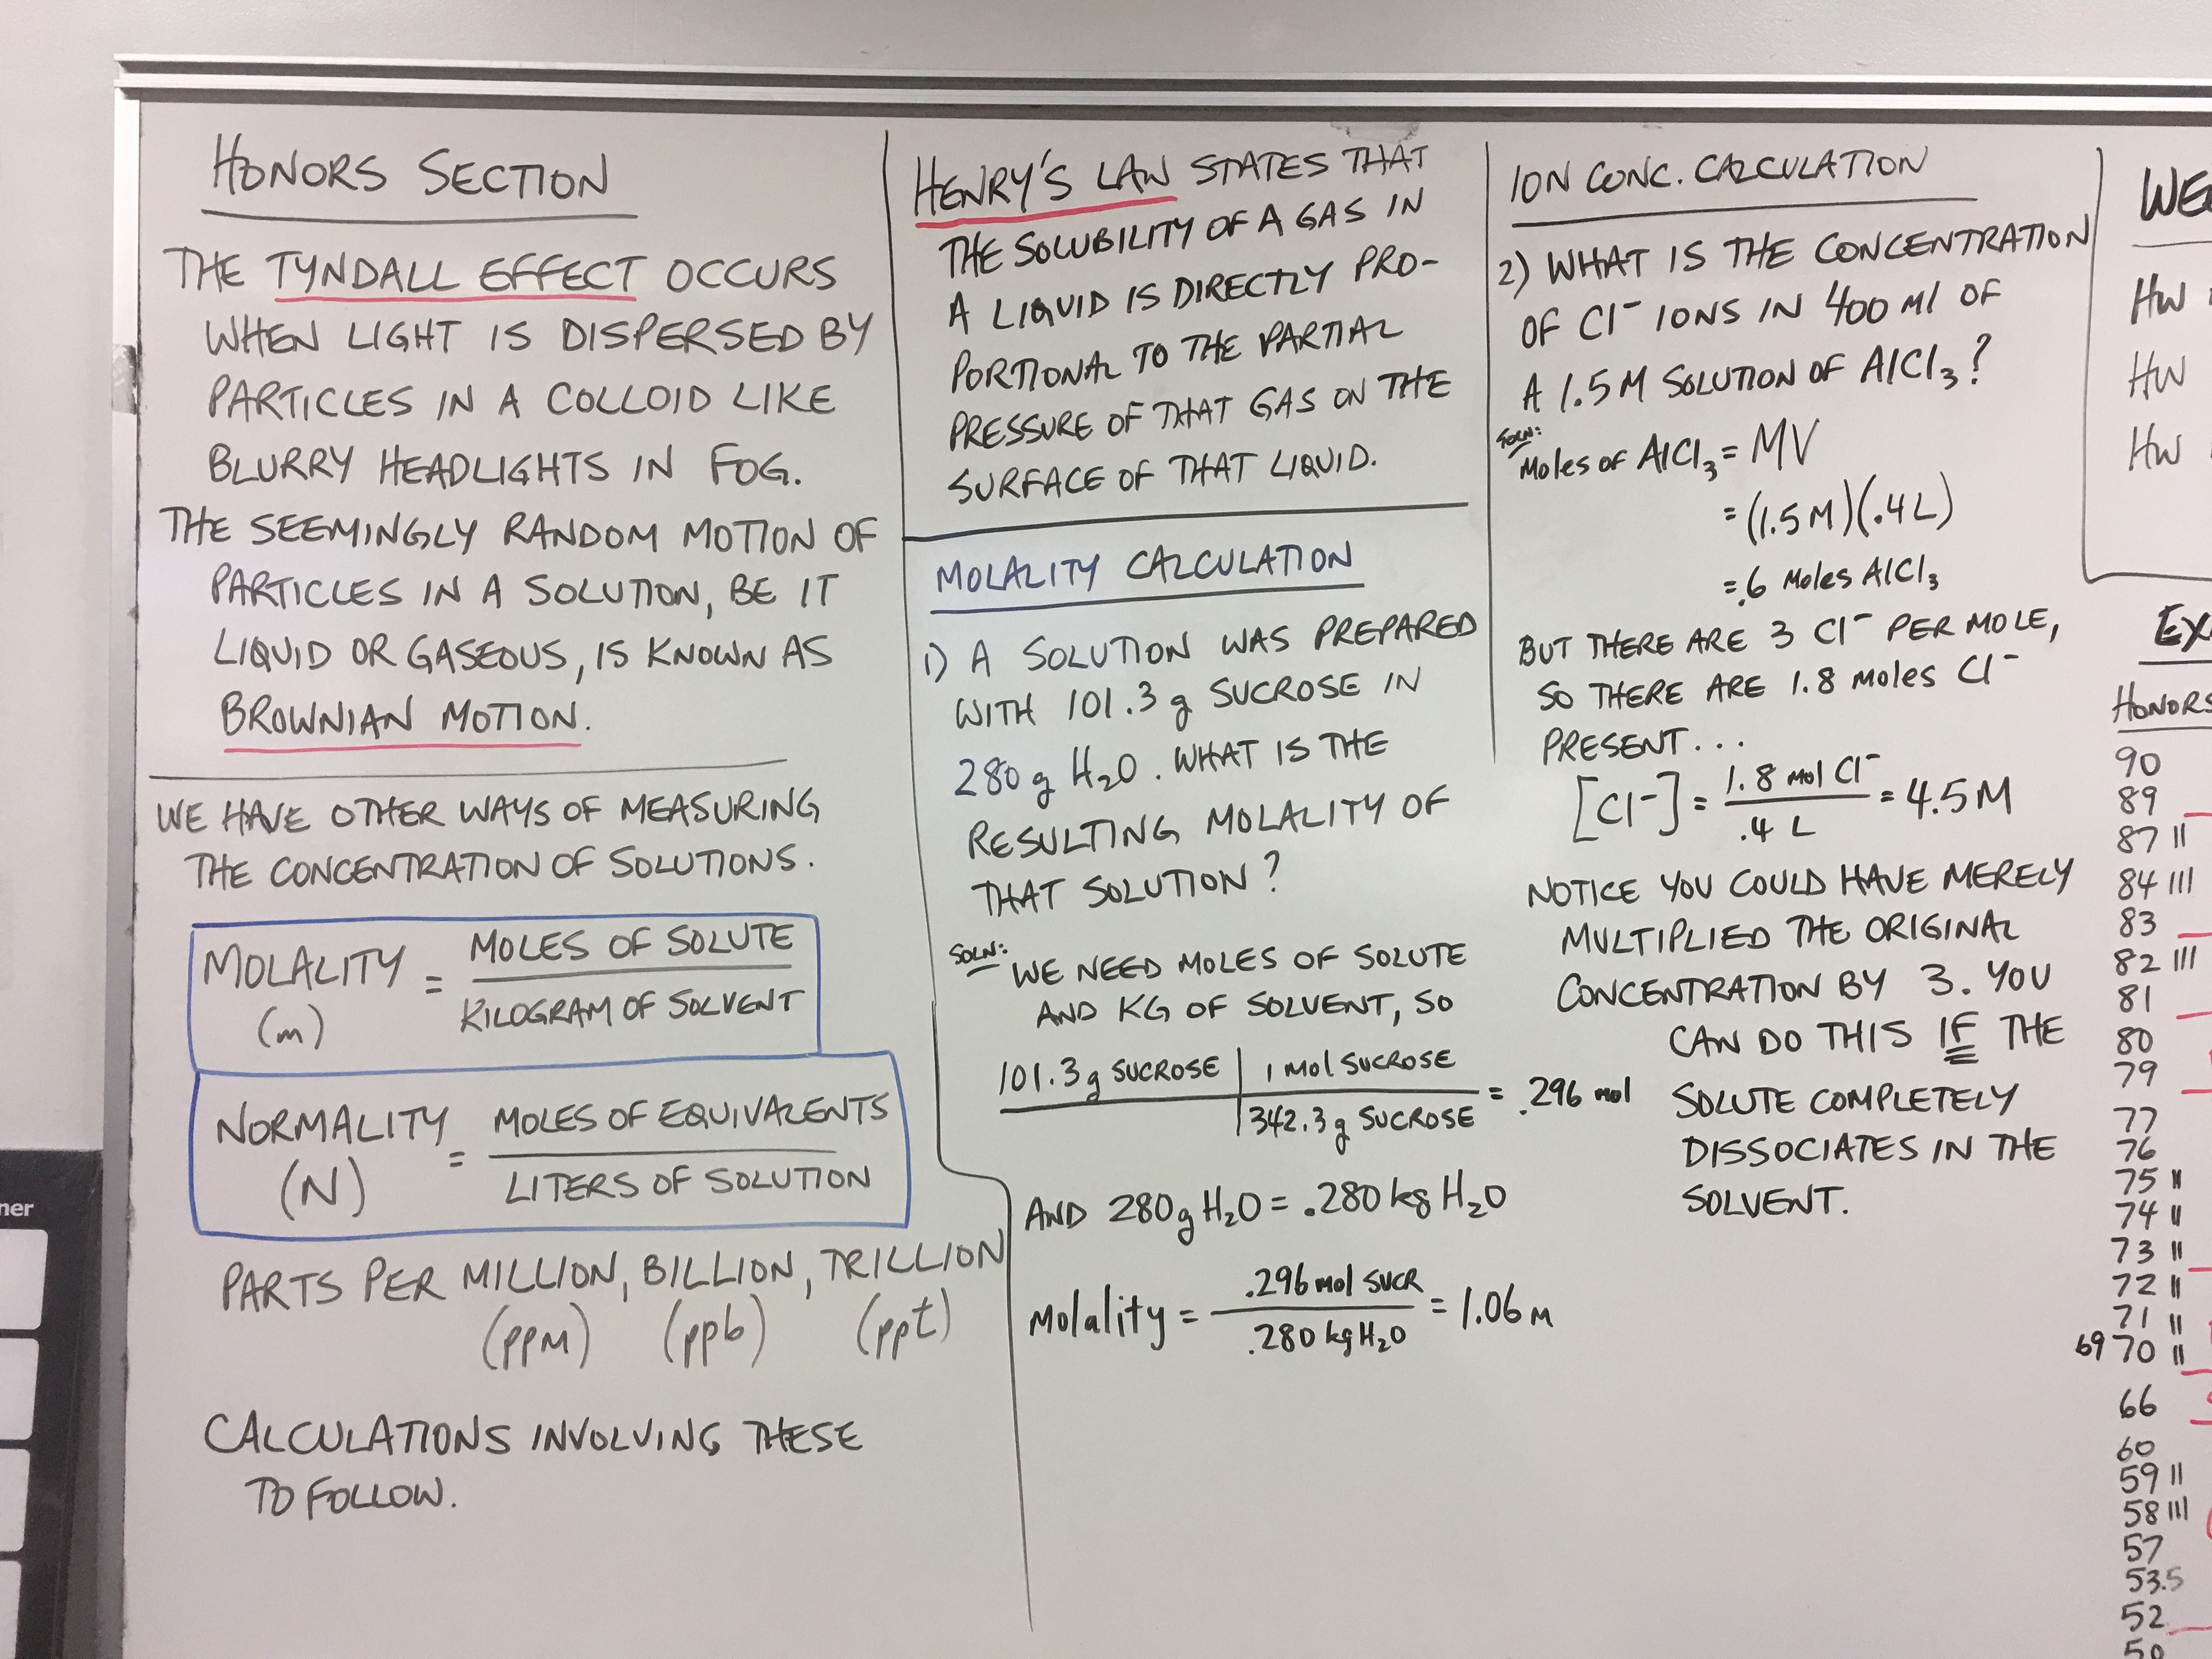 HONORS SECTION
THE TYNDALL EFFECT OCCURS
WHEN LIGHT IS DISPERSED BY
PARTICLES IN A COLLOID LIKE
BLURRY HEADLIGHTS IN FOG.
THE SEEMINGLY RANDOM MOTION OF
PARTICLES IN A SOLUTION, BE IT
LIQUID OR GASEOUS, IS KNOWN AS
BROWNIAN MOTION.
WE HAVE OTHER WAYS OF MEASURING
THE CONCENTRATION OF SOLUTIONS.
MOLALITY (m) = MOLES OF SOLUTE / KILOGRAM OF SOLVENT
NORMALITY (N) = MOLES OF EQUIVALENTS / LITERS OF SOLUTION
PARTS PER MILLION, BILLION, TRILLION
(ppm) (ppb) (ppt)
CALCULATIONS INVOLVING THESE
TO FOLLOW.
HENRY'S LAW STATES THAT
THE SOLUBILITY OF A GAS IN
A LIQUID IS DIRECTLY PRO-
PORTIONAL TO THE PARTIAL
PRESSURE OF THAT GAS ON THE
SURFACE OF THAT LIQUID.
MOLALITY CALCULATION
1) A SOLUTION WAS PREPARED
WITH 101.3 g SUCROSE IN
280 g H₂O. WHAT IS THE
RESULTING MOLALITY OF
THAT SOLUTION?
SOLN: WE NEED MOLES OF SOLUTE
AND KG OF SOLVENT, SO
101.3 g SUCROSE | 1 mol SUCROSE
342.3 g SUCROSE = .296 mol
AND 280 g H₂O = .280 kg H₂O
Molality = .296 mol SUCR / .280 kg H₂O = 1.06 m
ION CONC. CALCULATION
2) WHAT IS THE CONCENTRATION
OF Cl⁻ IONS IN 400 ml OF
A 1.5 M SOLUTION OF AlCl₃?
SOLN:
Moles of AlCl₃ = MV
= (1.5 M)(.4 L)
= .6 Moles AlCl₃
BUT THERE ARE 3 Cl⁻ PER MOLE,
SO THERE ARE 1.8 moles Cl⁻
PRESENT...
[Cl⁻] = 1.8 mol Cl⁻ / .4 L = 4.5 M
NOTICE YOU COULD HAVE MERELY
MULTIPLIED THE ORIGINAL
CONCENTRATION BY 3. YOU
CAN DO THIS IF THE
SOLUTE COMPLETELY
DISSOCIATES IN THE
SOLVENT.
HW
HW
HW
HONORS
90
89
87 II
84 III
83
82 III
81
80
79
77
76
75 II
74 II
73 II
72 II
71 II
69 70 II
66
60
59 II
58 III
57
53.5
52